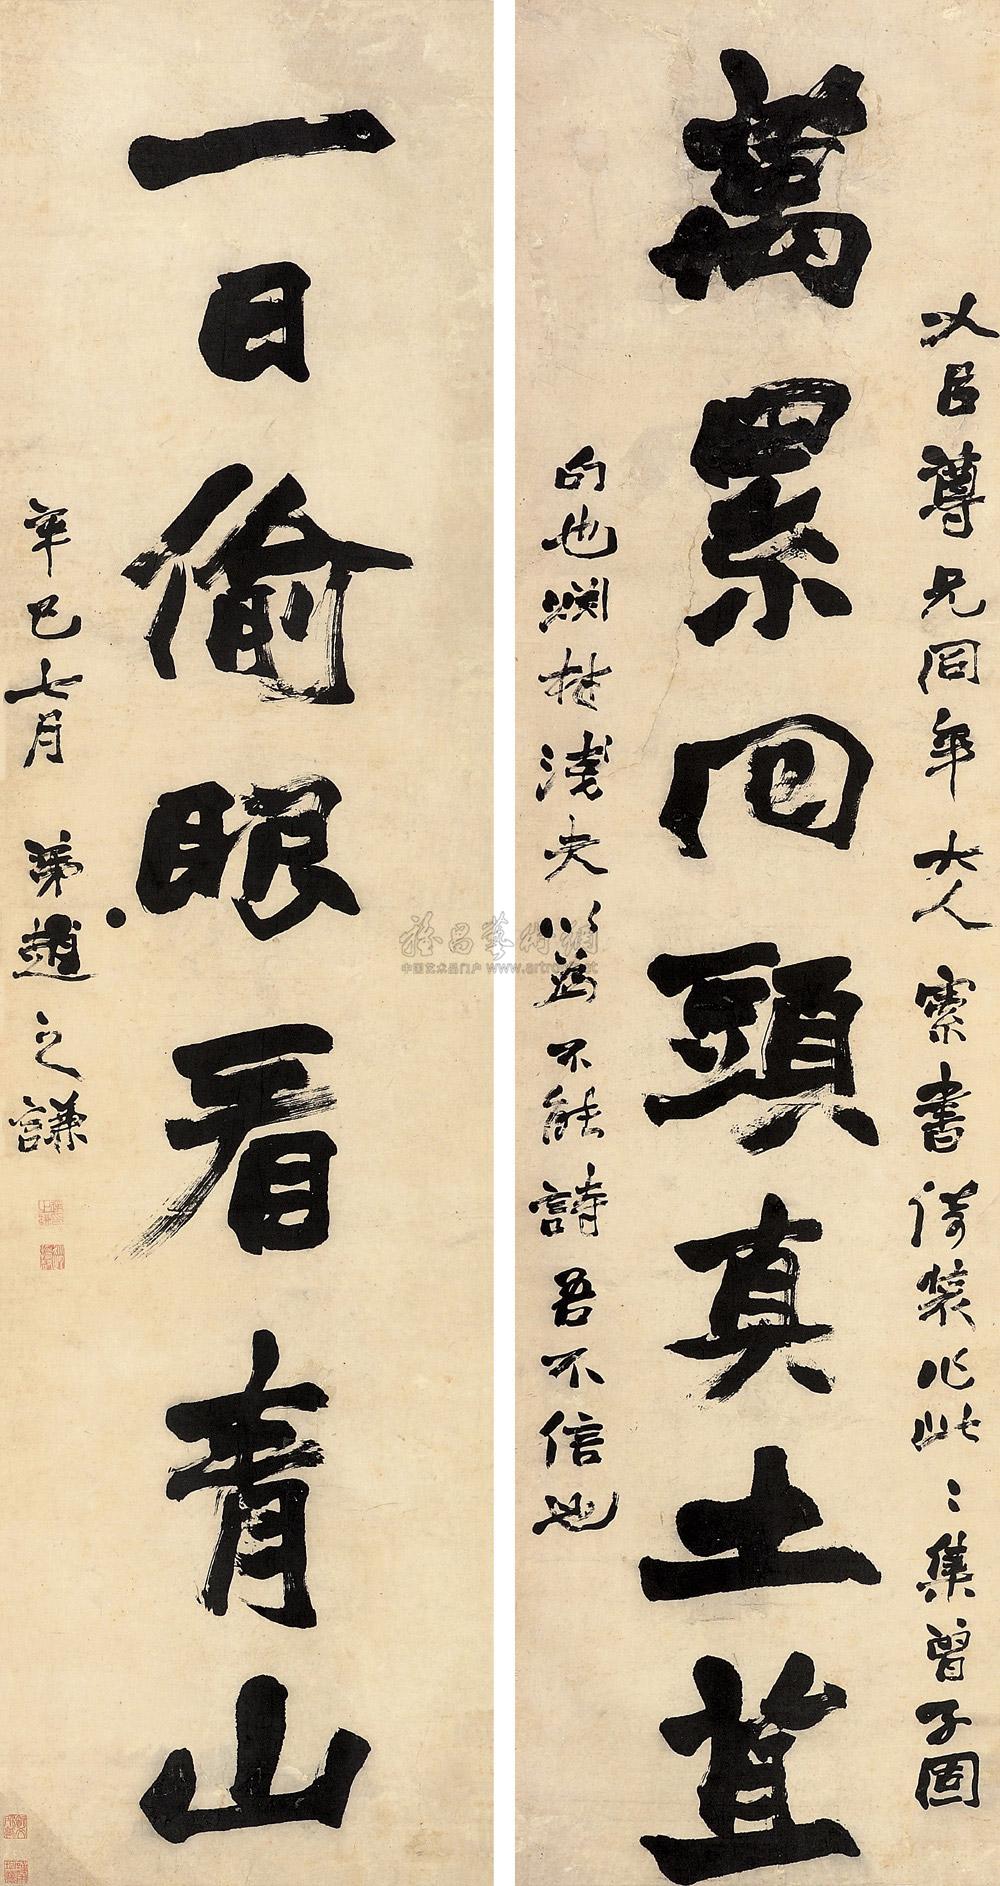 尊兄同年大人索書倚裝作此〻集曾子固
萬累回頭真土苴
句也淺夫以為不能詩吾不信也
一日偷眼看青山
辛巳七月弟趙之謙
雅昌藝術網
中国艺术品门户 www.artron.net